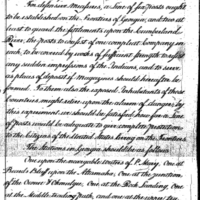 For defensive measures, a line of five posts ought
to be established on the Frontiers of Georgia, and two at
least to guard the settlements upon the Cumberland
River, the posts to consist of one compleat Company
each, to be covered by works of sufficient strength to
any sudden impressions of the Indians, and to
as places of deposit of Magazines should hereafter be
formed. To them also the exposed Inhabitants of those
Countries, might retire upon the alarm of danger; by
this experiment, we should be satisfied, how far a line of
posts would be adequate to give complete protection
to the Citizens of the United States living on the frontiers.
The Stations in Georgia should be as follows
One upon the navigable waters of St. Mary, One at
Beard's Bluff upon the Altamaha, One at the junction
of the Oconee & One at the Rock Landing. One
at the Middle trading Path, and one at the